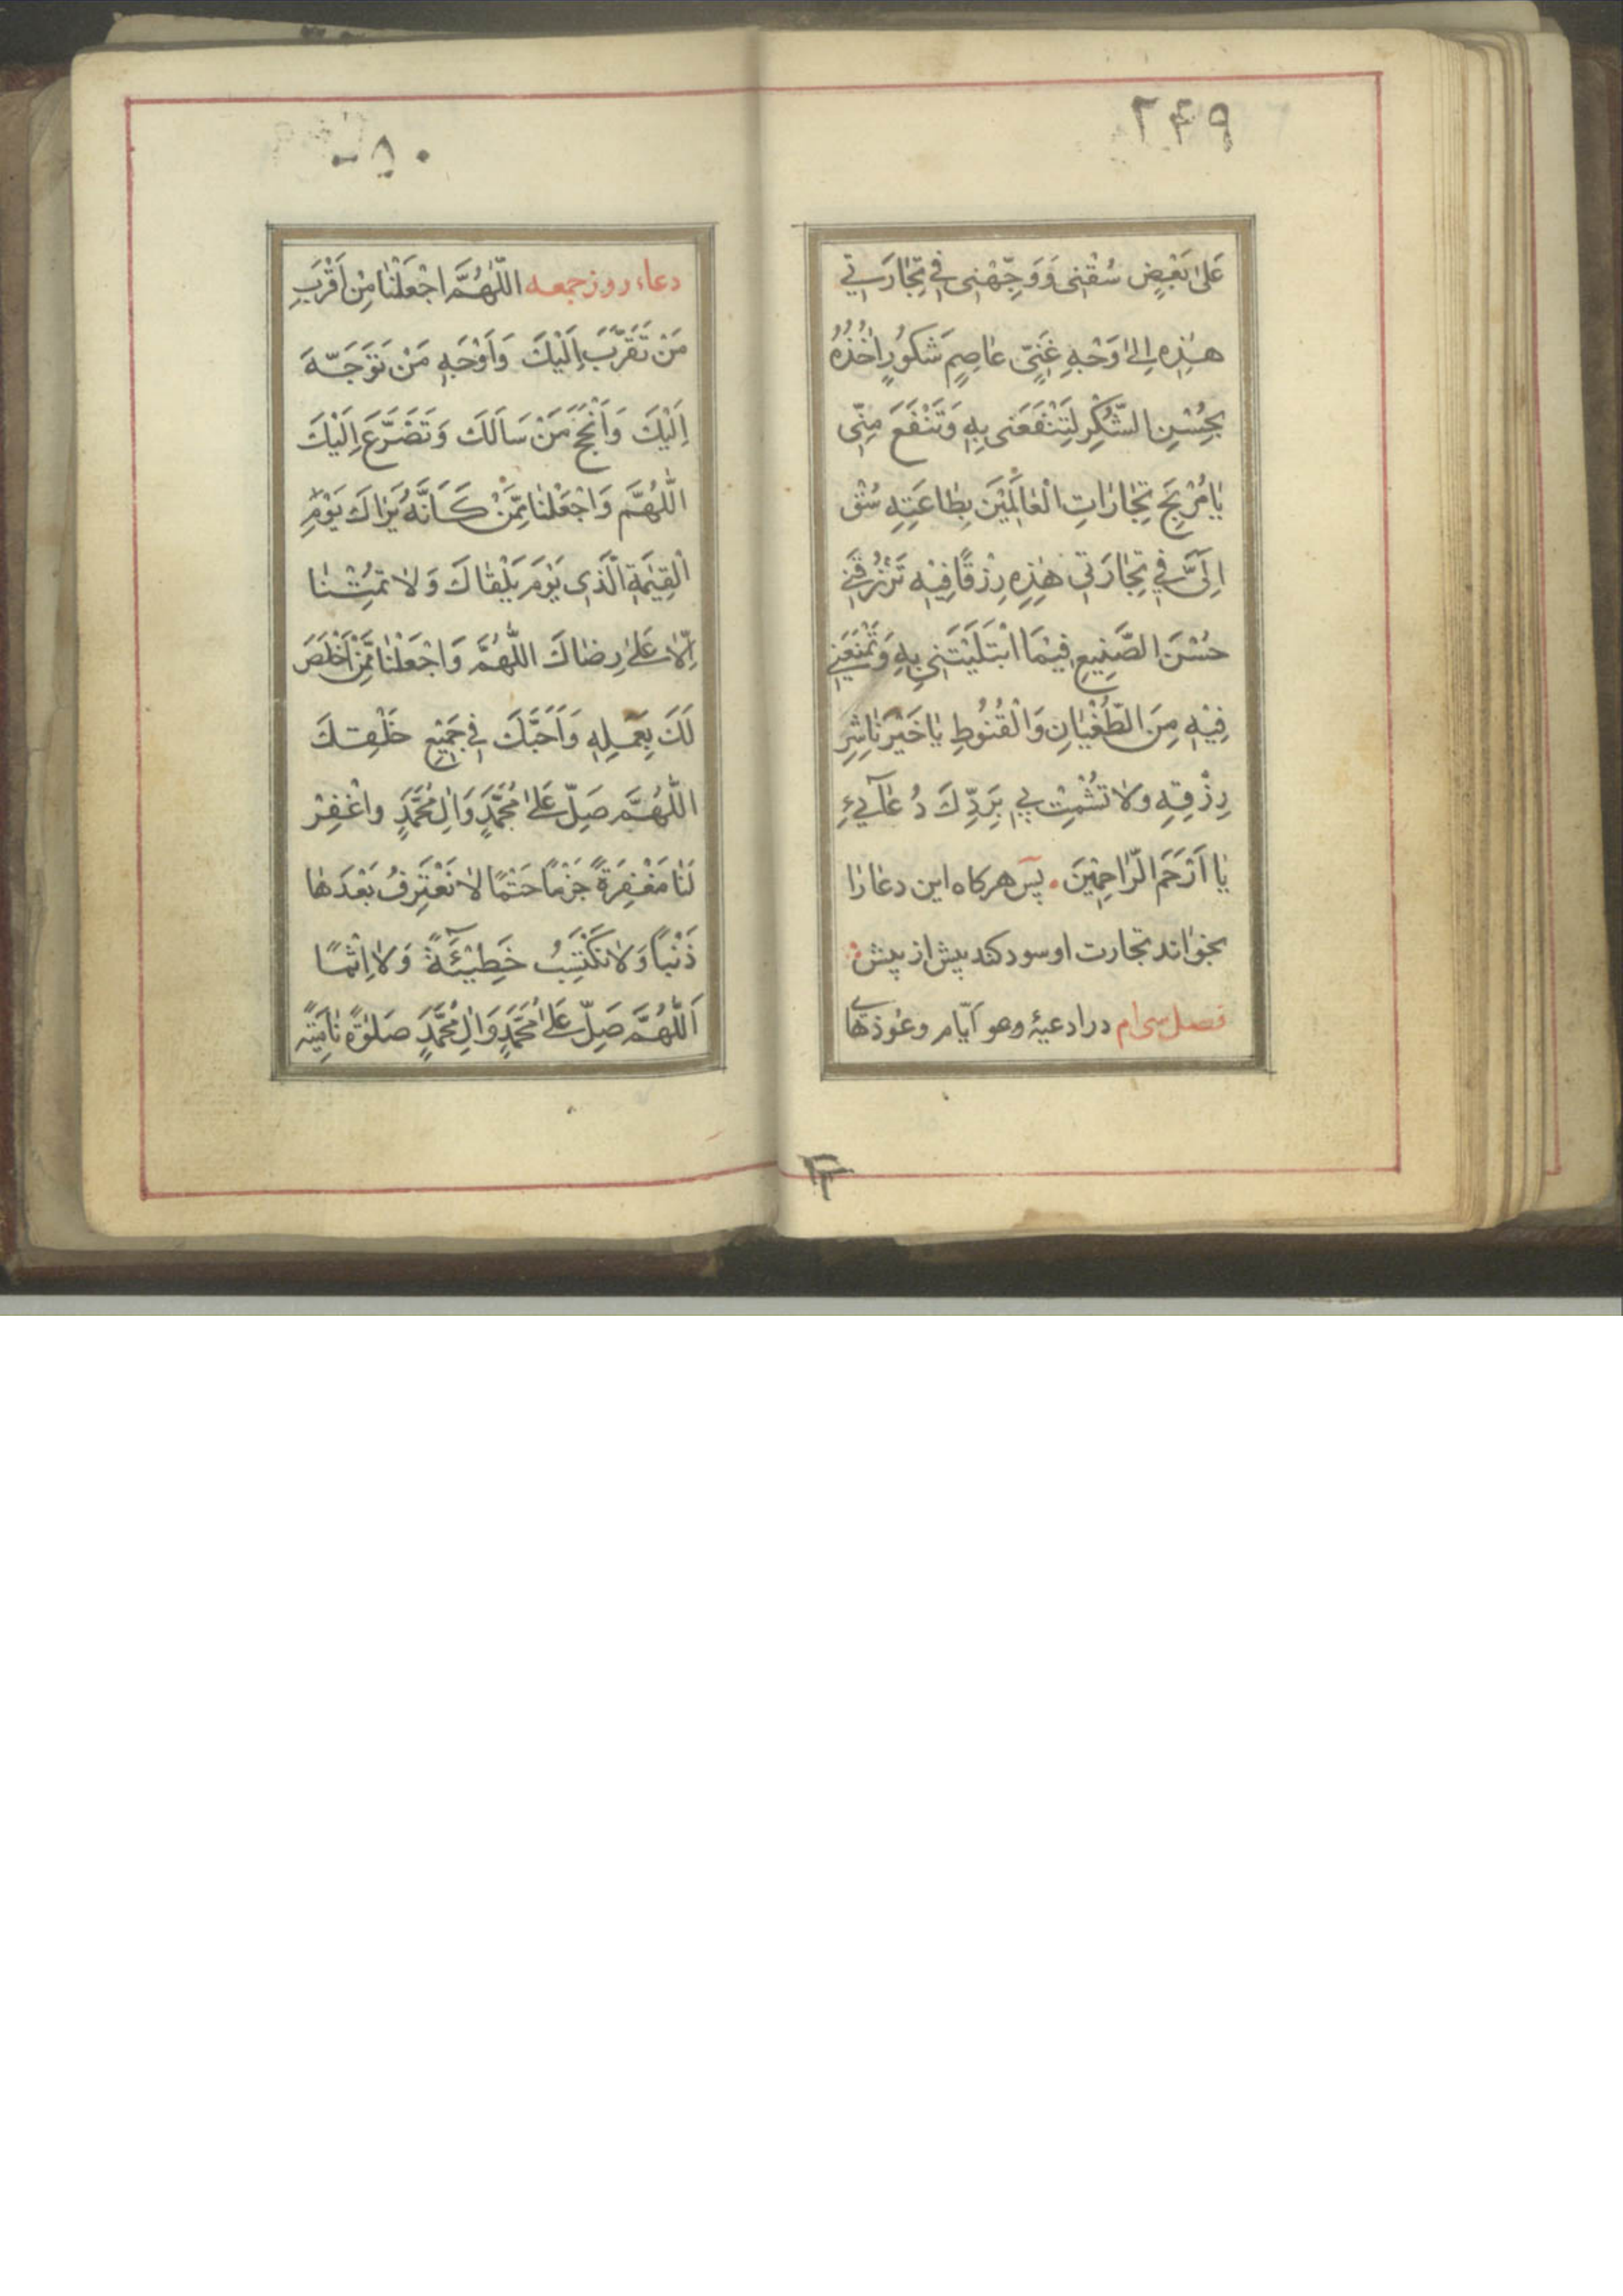 ۲۴۹
عَلىٰ بَعْضٍ سُقْنِى وَوَجِّهْنِى فِى تِجٰارَتِى
هٰذِهِ اِلىٰ وَجْهِ غَنِىٍّ عٰاصِمٍ شَكُورٍ اٰخُذُهُ
بِحُسْنِ الشُّكْرِ لِتَنْفَعَنِى بِهِ وَتَنْفَعَ مِنِّى
يٰا مُرْبِحَ تِجٰارٰاتِ الْعٰالَمِيْنَ بِطٰاعَتِهِ سُقْ
اِلَىَّ فِى تِجٰارَتِى هٰذِهِ رِزْقًا فِيْهِ تَرْزُقْنِى
حُسْنَ الصَّنِيعِ فِيْمَا ابْتَلَيْتَنِى بِهِ وَتَمْنَعَنِى
فِيْهِ مِنَ الطُّغْيٰانِ وَالْقُنُوطِ يٰا خَيْرَ نٰاشِرِ
رِزْقِهِ وَلا تُشْمِتْ بِى بِرَدِّكَ دُعٰآئِى
يٰا اَرْحَمَ الرّٰاحِمِيْنَ. پس هركاه اين دعا را
بخواند تجارت او سود كند بيش از پيش
فصل سى ام در ادعيۀ وهو ايّام وعوذهاى
۵۰
دعاء روز جمعه اللّٰهُمَّ اجْعَلْنٰا مِنْ اَقْرَبِ
مَنْ تَقَرَّبَ اِلَيْكَ وَاَوْجَهِ مَنْ تَوَجَّهَ
اِلَيْكَ وَاَنْجَحِ مَنْ سَاَلَكَ وَتَضَرَّعَ اِلَيْكَ
اللّٰهُمَّ وَاجْعَلْنٰا مِمَّنْ كَاَنَّهُ يَرٰاكَ يَوْمِ
الْقِيٰمَةِ الَّذِى يَوْمَ يَلْقٰاكَ وَلاٰ تُمِتْنٰا
اِلّٰا عَلىٰ رِضٰاكَ اللّٰهُمَّ وَاجْعَلْنٰا مِمَّنْ اَخْلَصَ
لَكَ بِعَمَلِهِ وَاَحَبَّكَ فِى جَمِيْعِ خَلْقِكَ
اللّٰهُمَّ صَلِّ عَلىٰ مُحَمَّدٍ وَاٰلِ مُحَمَّدٍ وَاغْفِرْ
لَنٰا مَغْفِرَةً جَزْمًا حَتْمًا لاٰ نَقْتَرِفُ بَعْدَهٰا
ذَنْبًا وَلاٰ نَكْتَسِبُ خَطِيْئَةً وَلاٰ اِثْمًا
اَللّٰهُمَّ صَلِّ عَلىٰ مُحَمَّدٍ وَاٰلِ مُحَمَّدٍ صَلٰوةً نٰامِيَةً